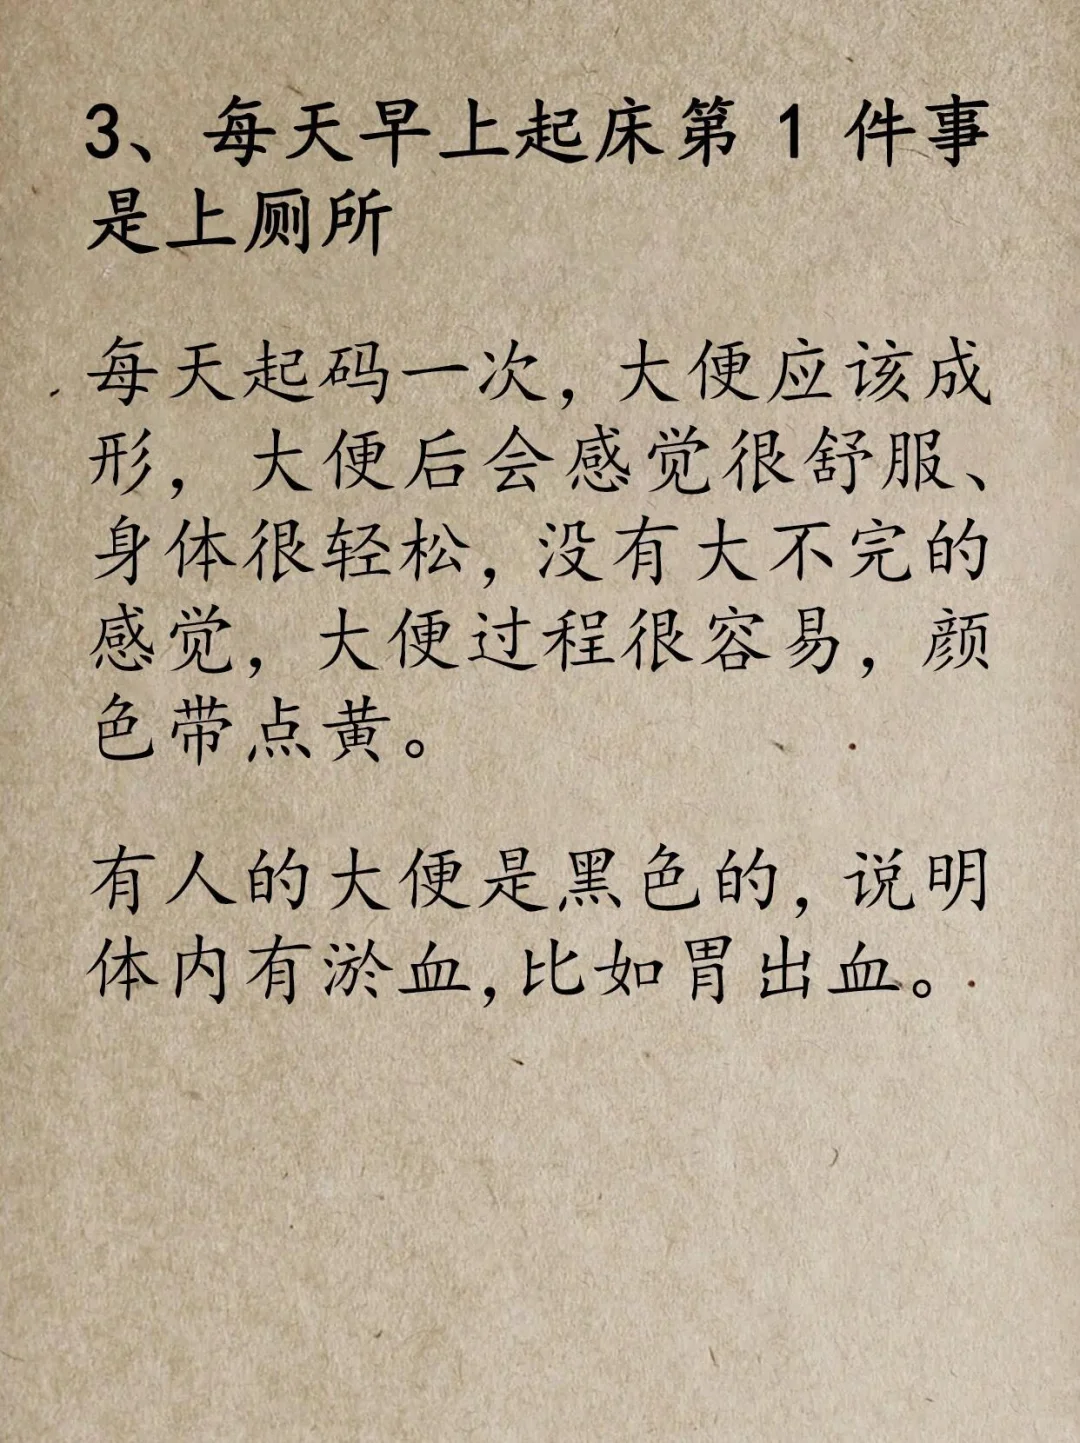 3、每天早上起床第 1 件事
是上厕所
每天起码一次，大便应该成
形，大便后会感觉很舒服、
身体很轻松，没有大不完的
感觉，大便过程很容易，颜
色带点黄。
有人的大便是黑色的，说明
体内有淤血，比如胃出血。